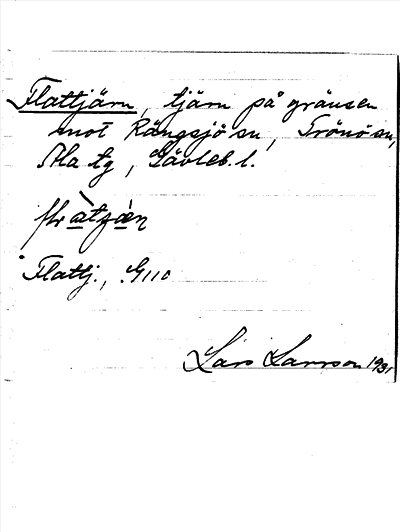 Flattjärn, tjärn på gränsen
mot Rängsjö sn, Trönö sn,
Ala tg, Gävleb. l.
Flattj., G110
Lars Larsson 1931